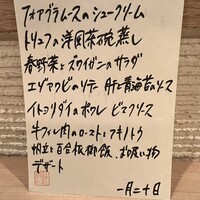 フォアグラムースのシュークリーム
トリュフの洋風茶碗蒸し
春野菜とズワイガニのサラダ
エゾアワビのソテー 肝と青海苔のソース
イトヨリダイのポワレ ビスクソース
牛フィレ肉のロースト フキノトウ
帆立と百合根御飯、お吸い物
デザート
一月二十日